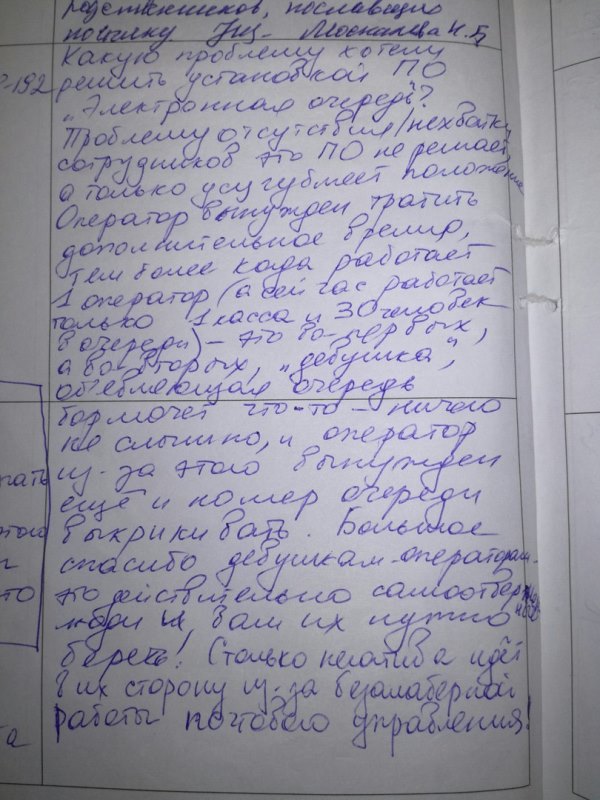 родственников, пославших
посылку Инд. Москалева Н.Б.
Какую проблему хотели
-192 решить установкой ПО
„Электронная очередь"?
Проблему отсутствия/нехватки
сотрудников это ПО не решает,
а только усугубляет положение
Оператор вынужден тратить
дополнительное время,
тем более когда работает
1 оператор (а сейчас работает
только 1 касса и 30 человек
в очереди) – это во-первых,
а во-вторых, „девушка",
объявляющая очередь
бормочет что-то – ничего
не слышно, и оператор
из-за этого вынужден
ещё и номер очереди
выкрикивать. Большое
спасибо девушкам-операторам –
это действительно самоотверженные
люди и Вам их нужно
беречь! Столько негатива идёт
в их сторону из-за безалаберной
работы почтового управления!